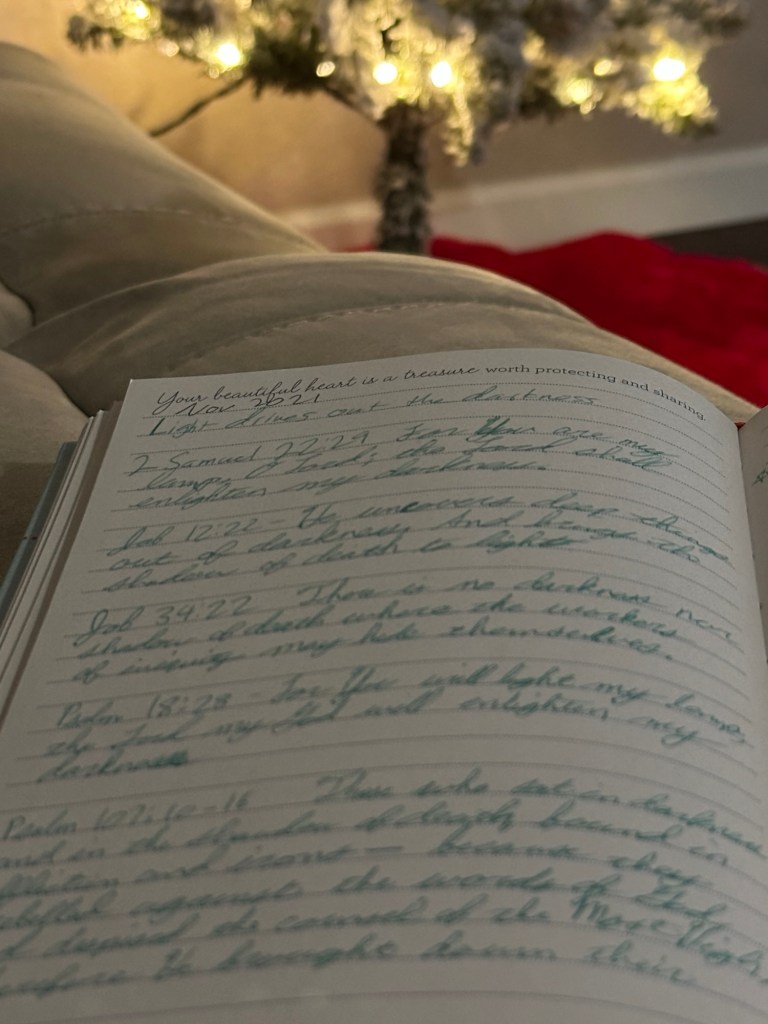 Your beautiful heart is a treasure worth protecting and sharing.
Nov 2021
Light drives out the darkness
2 Samuel 22:29 For You are my
lamp, O Lord; the Lord shall
enlighten my darkness.
Job 12:22 - He uncovers deep things
out of darkness, And brings the
shadow of death to light
Job 34:22 There is no darkness nor
shadow of death where the workers
of iniquity may hide themselves.
Psalm 18:28 - For You will light my lamp,
the Lord my God will enlighten my
darkness
Psalm 107:10-16 Those who sat in darkness
and in the shadow of death, bound in
and irons — because they
against the words of God,
despised the counsel of the Most High,
He brought down their